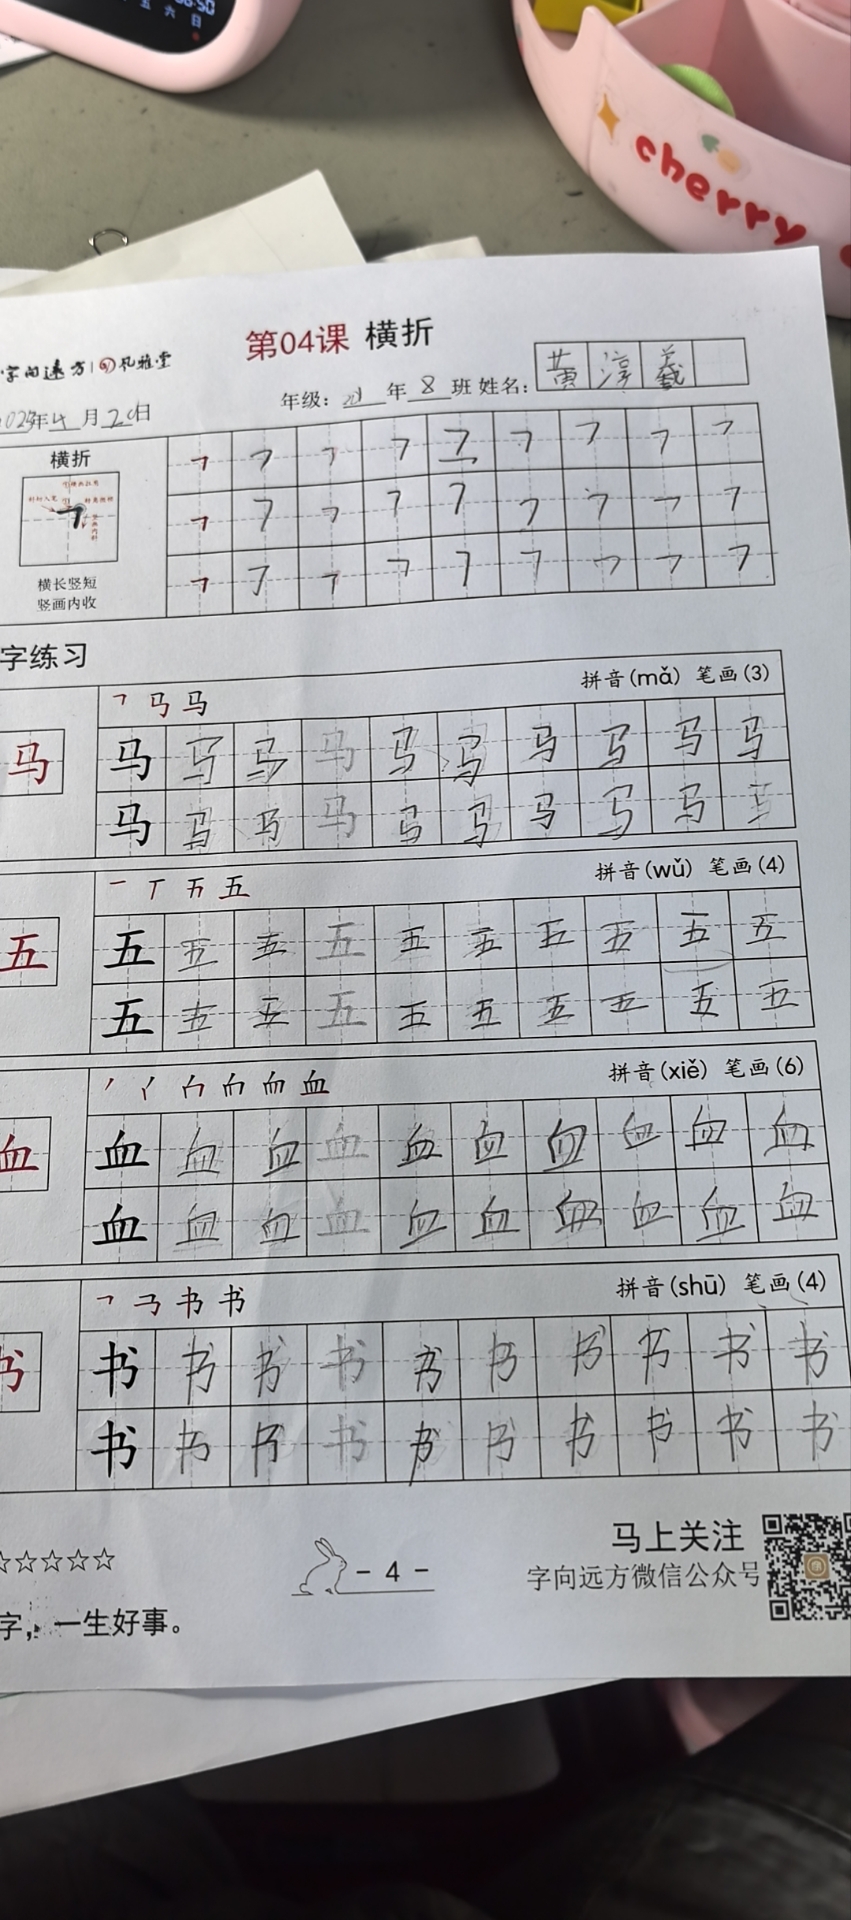 五 六 日
cherry
第04课 横折
字向远方 孔雅堂
年级: 四 年 8 班 姓名: 黄淳羲
年4月20日
横折
横长竖短
竖画内收
字练习
㇕ 马 马 拼音(mǎ) 笔画(3)
马 马 马 马 马 马 马 马 马 马 马
马 马 马 马 马 马 马 马 马 马
一 丅 五 拼音(wǔ) 笔画(4)
五 五 五 五 五 五 五 五 五 五 五
五 五 五 五 五 五 五 五 五 五
血 拼音(xiě) 笔画(6)
血 血 血 血 血 血 血 血 血 血 血
血 血 血 血 血 血 血 血 血 血
㇕ 书 书 拼音(shū) 笔画(4)
书 书 书 书 书 书 书 书 书 书 书
书 书 书 书 书 书 书 书 书 书
☆☆☆☆☆
- 4 -
马上关注
字向远方微信公众号
字，一生好事。